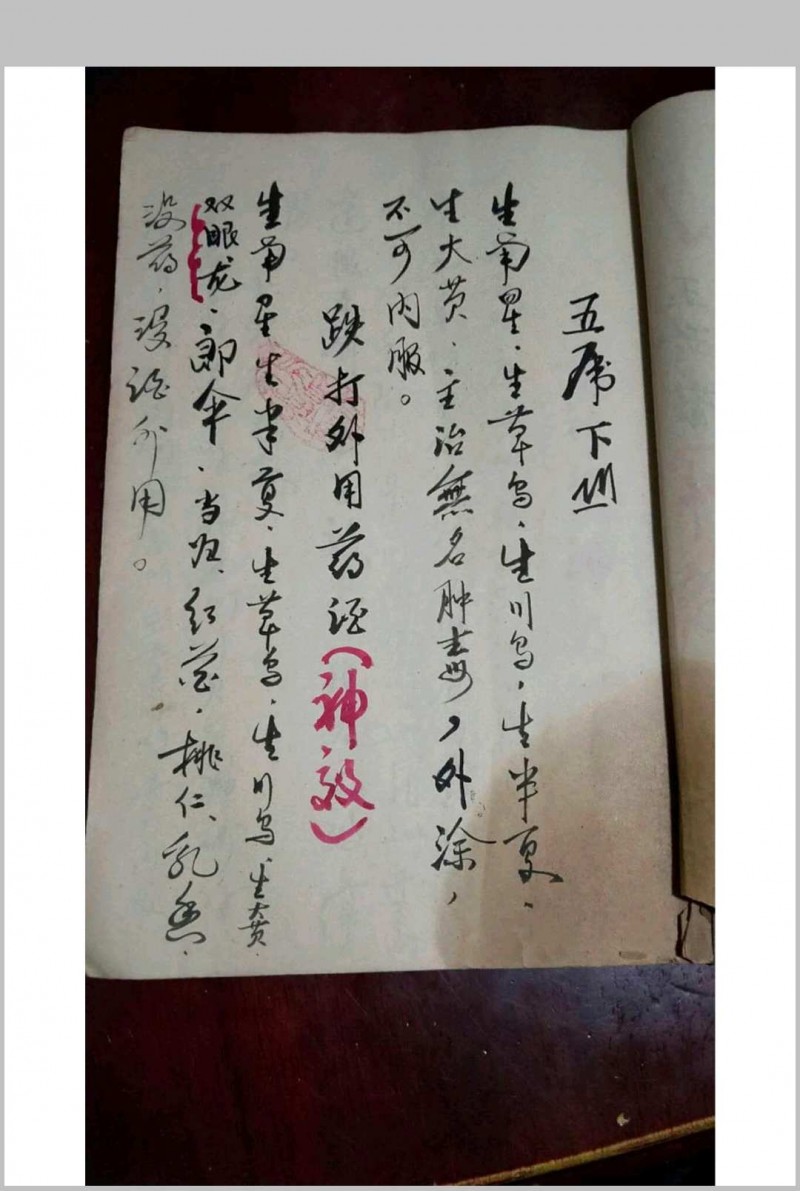 五虎下山
生南星、生草乌、生川乌、生半夏、
生大黄、主治無名肿毒，外涂，
不可内服。
跌打外用药酒（神效）
生南星生半夏、生草乌、生川乌、生大黄、
双眼龙、郎伞、当归、红花、桃仁、乳香、
没药、浸酒外用。